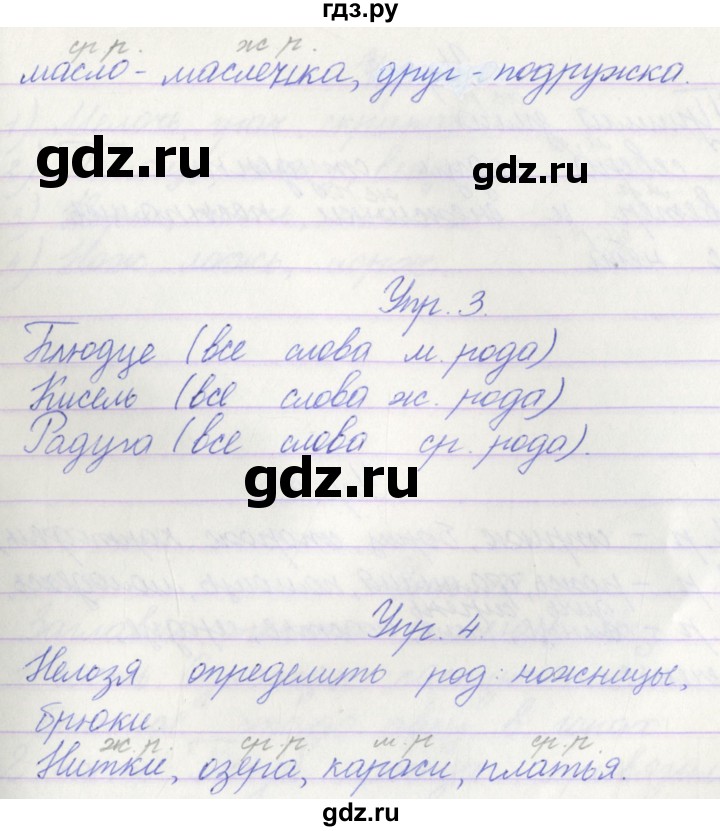 гдз.ру
ср. р. ж. р.
масло - маслечика, друг - подружка.
gdz.ru
gdz.ru
Упр. 3.
Блюдце (все слова м. рода)
Кисель (все слова ж. рода)
Радуга (все слова ср. рода).
gdz.ru
Упр. 4
Нельзя определить род: ножницы,
брюки.
ж. р. ср. р. м. р. ср. р.
Нитки, озера, караси, платья.
gdz.ru